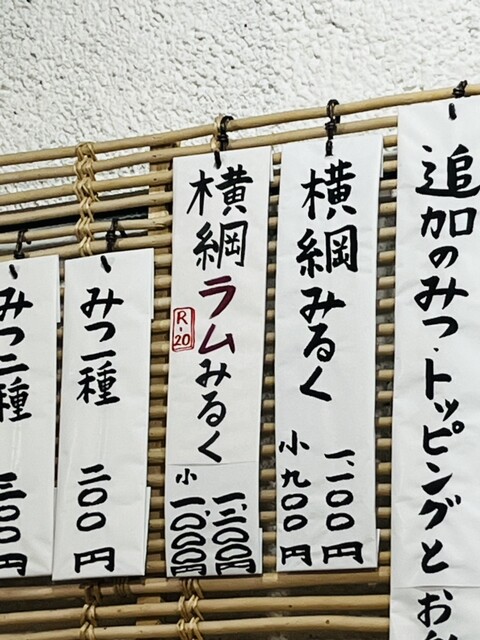 追加のみつ・トッピングとお
横綱みるく
一、一〇〇円
小九〇〇円
横綱ラムみるく
R-20
一、三〇〇円
小一、〇〇〇円
みつ一種 二〇〇円
みつ二種 三〇〇円